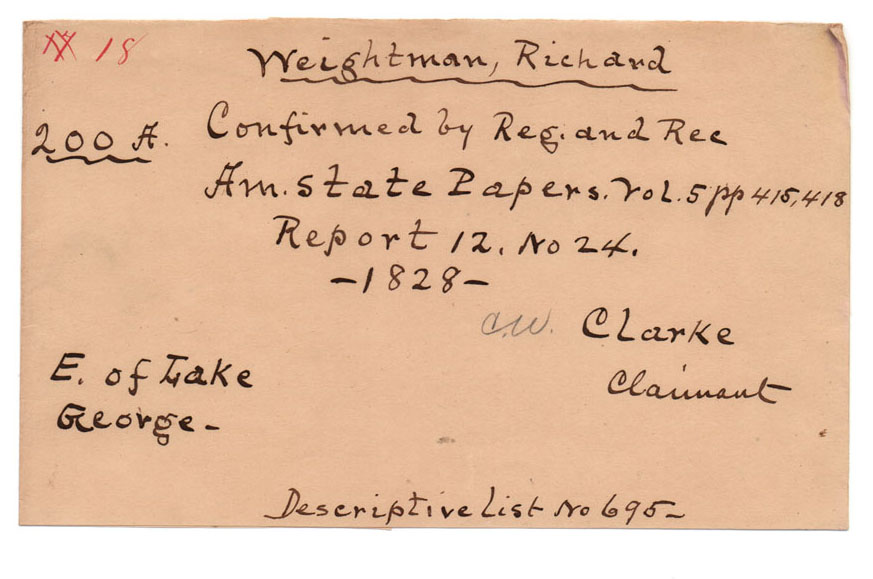 18
Weightman, Richard
200 A. Confirmed by Reg. and Rec
Am. State Papers. Vol. 5 pp 415, 418
Report 12. No 24.
-1828-
C.W. Clarke
Claimant
E. of Lake
George-
Descriptive List No 695-